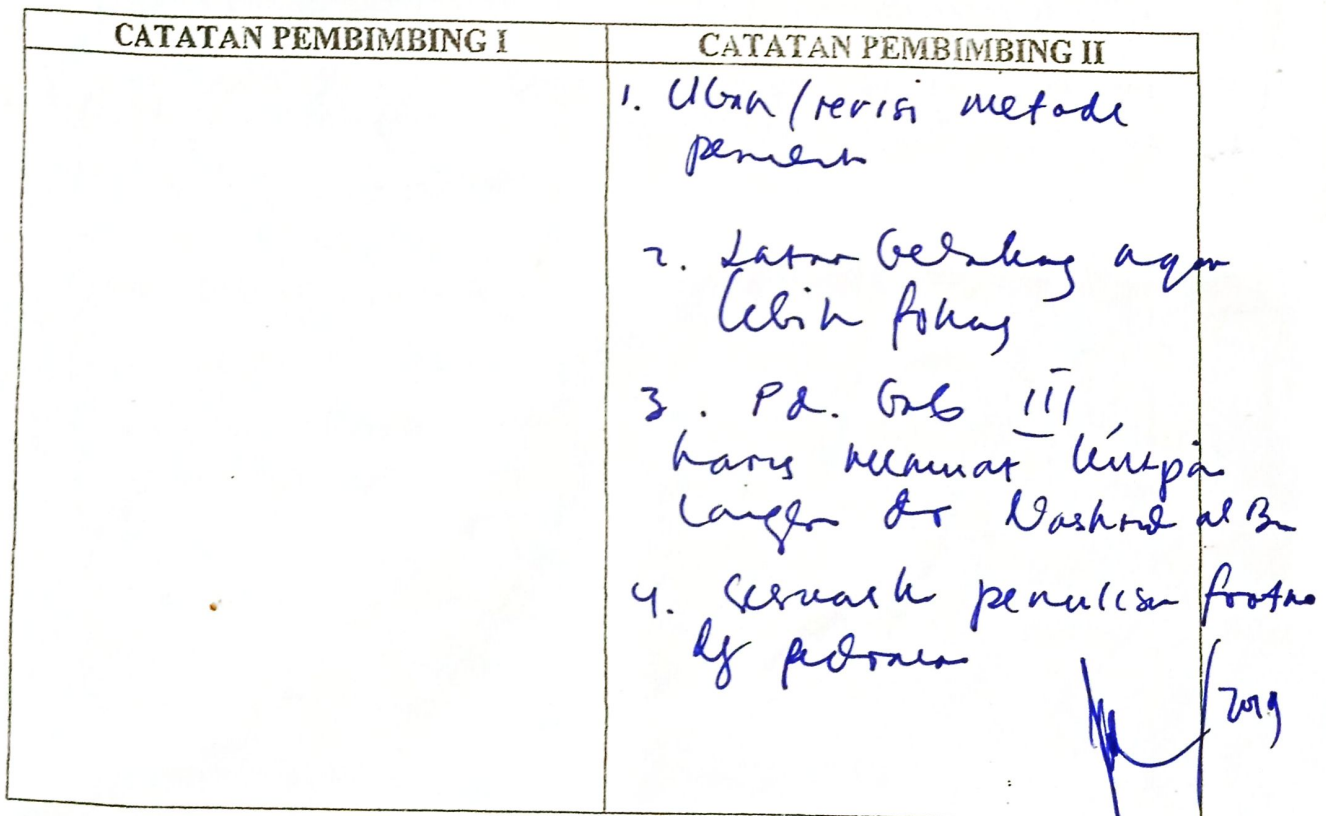 CATATAN PEMBIMBING I
CATATAN PEMBIMBING II
1. Ubah / revisi metode
2. Latar belakang agar
lebih fokus
3. Pd. bab III
harus memuat kutipan
dr
4. Sesuaik penulisan footno
dg pedoman
2019